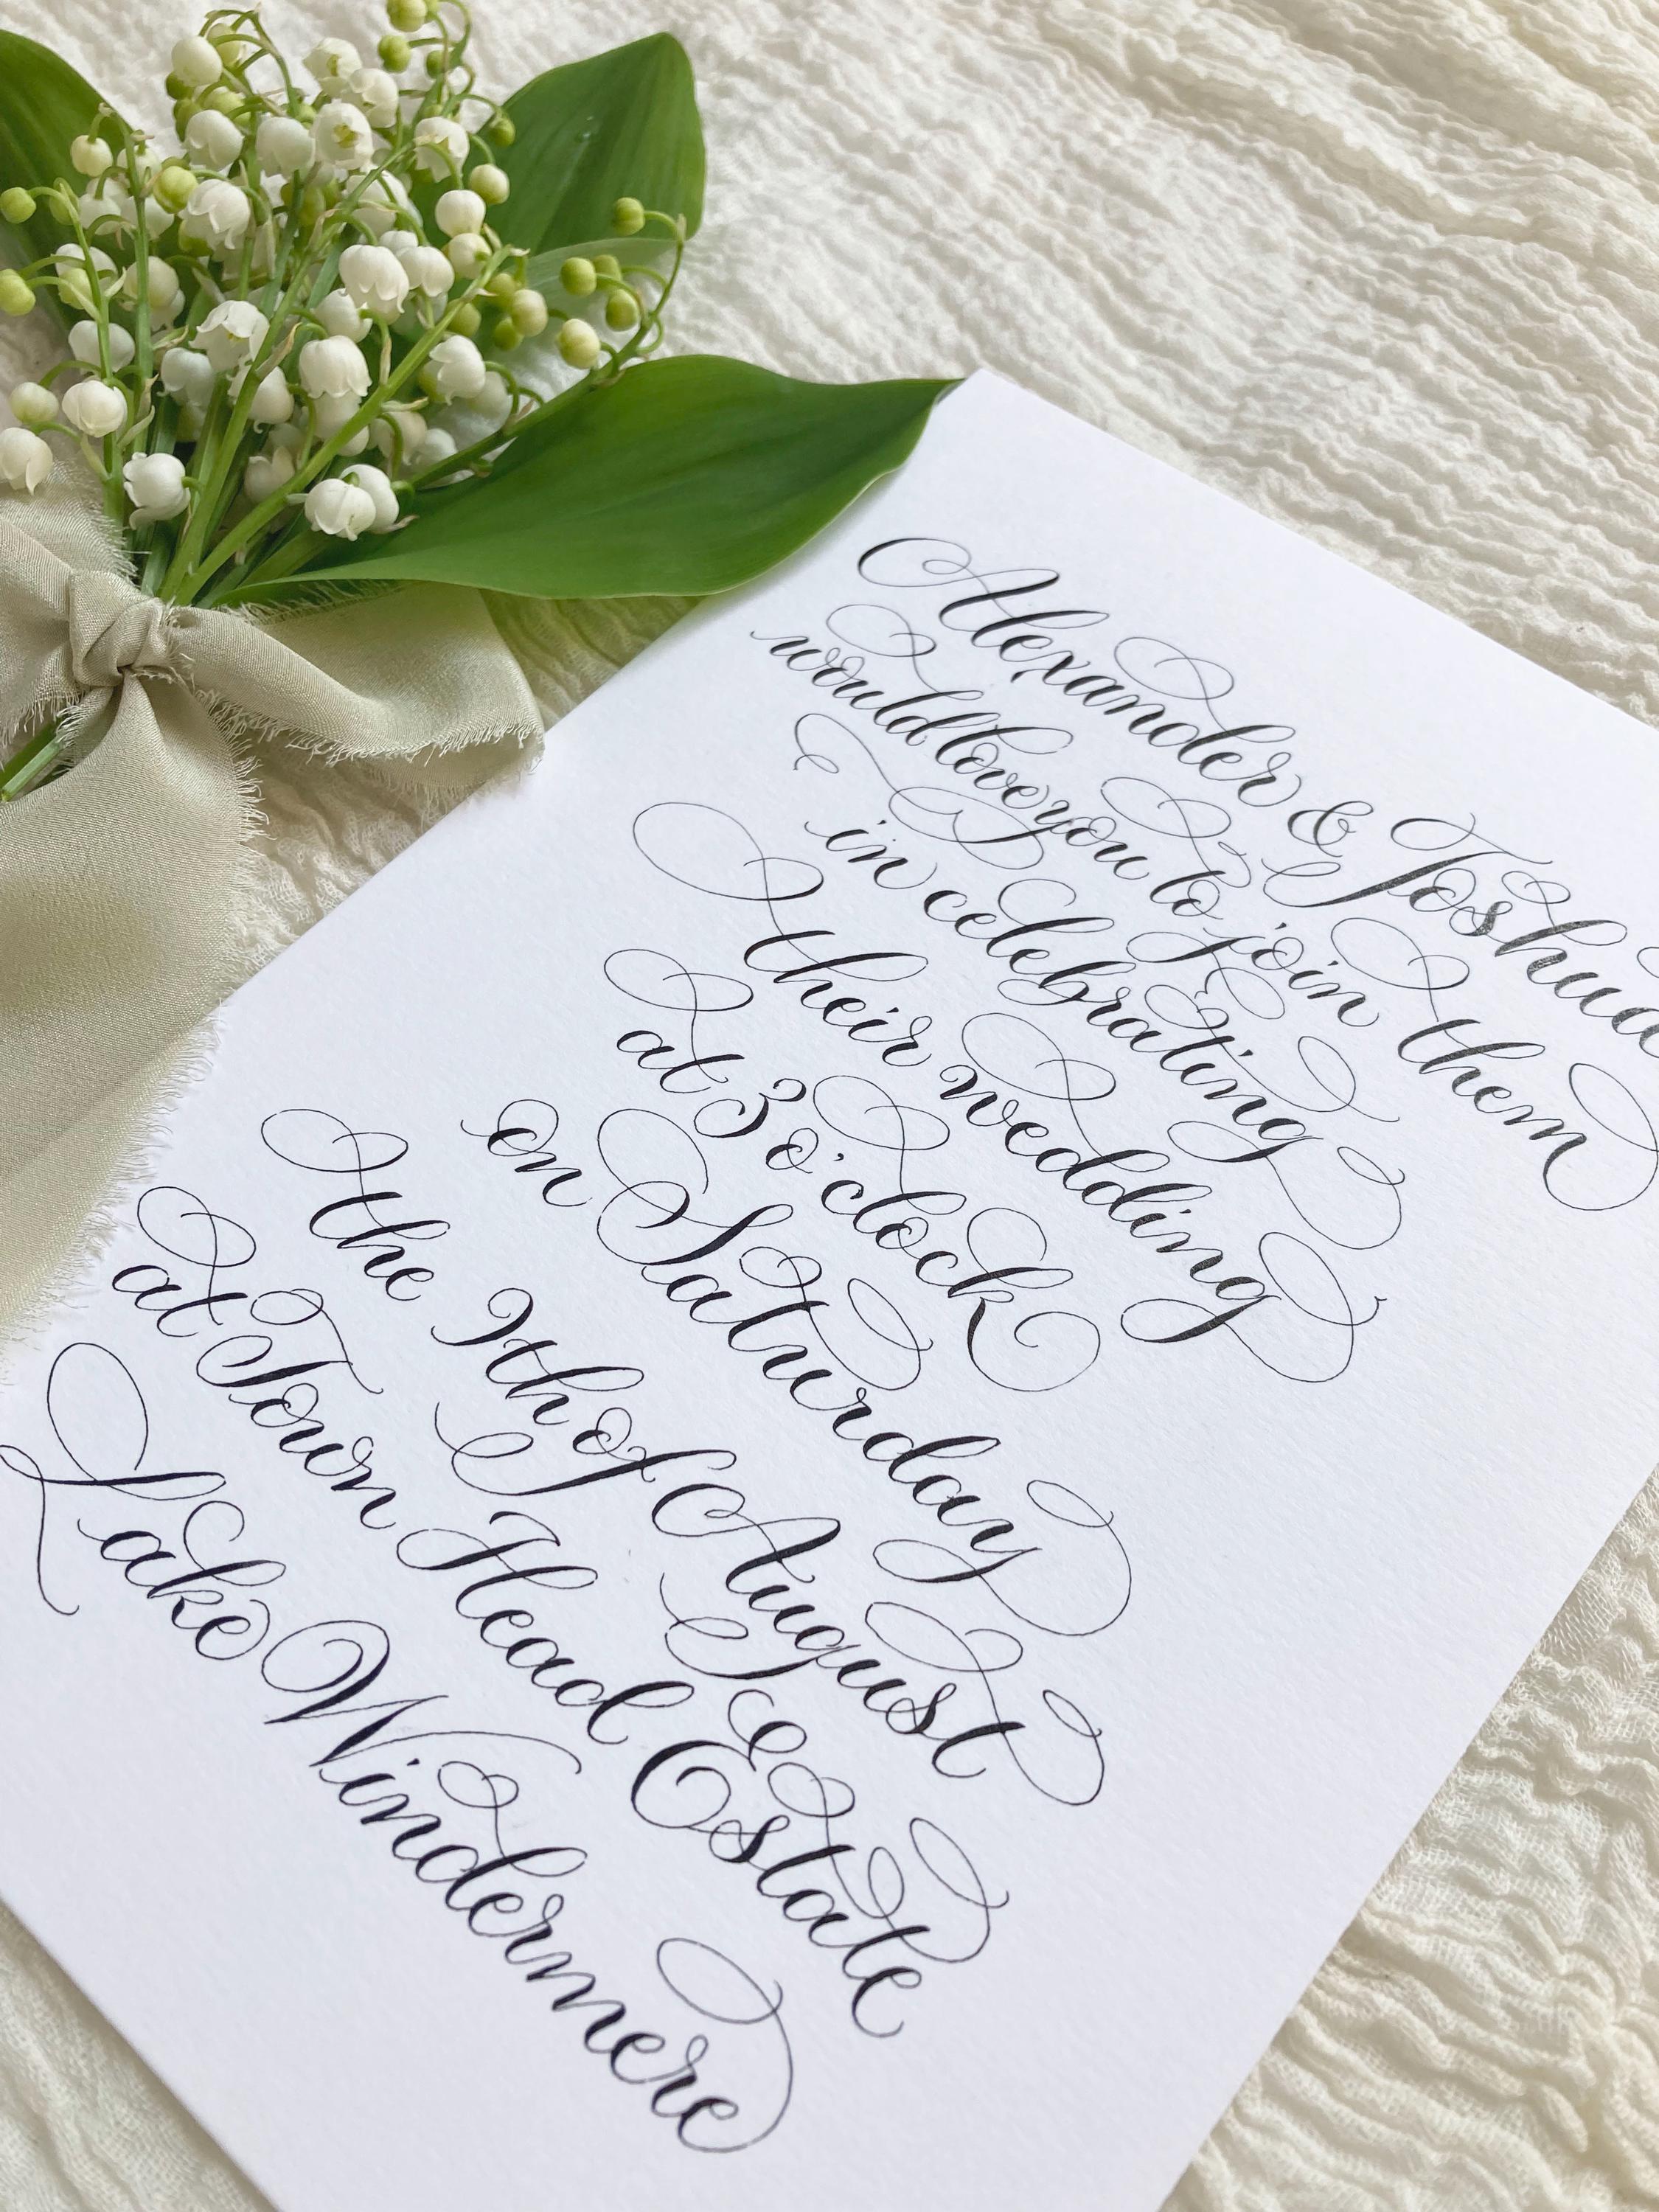 Alexander & Joshua
would love you to join them
in celebrating
their wedding
at 3 o'clock
on Saturday
the 9th of August
at Town Head Estate
Lake Windermere